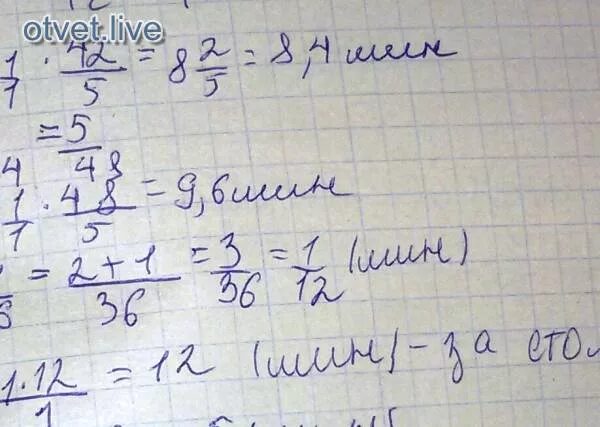 otvet.live
1/1 · 42/5 = 8 2/5 = 8,4 мин
4 = 5/48
1/1 · 48/5 = 9,6 мин
= 2+1/36 = 3/36 = 1/12 (мин)
1·12/1 = 12 (мин) - за стол